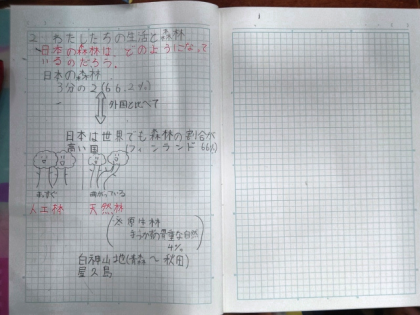 2 わたしたちの生活と森林
日本の森林は、どのようになって
いるのだろう。
日本の森林
3分の2(66.2%)
外国と比べて
日本は世界でも森林の割合が
高い国 (フィンランド 66%)
まっすぐ 曲がっている
人工林 天然林
※原生林
貴重な自然
4%
白神山地(青森〜秋田)
屋久島
1